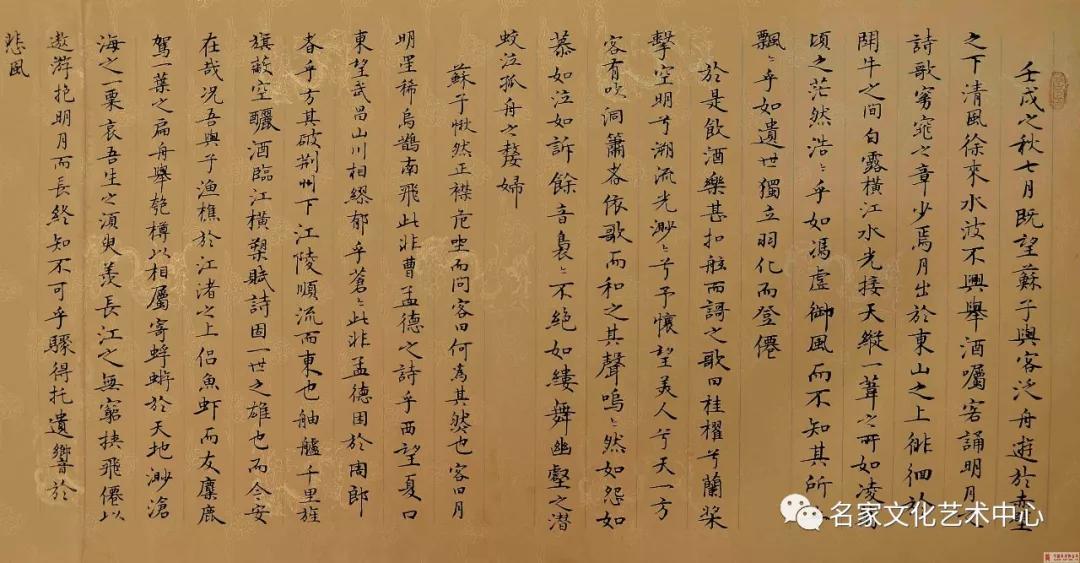 壬戌之秋七月既望蘇子與客泛舟遊於赤壁
之下清風徐來水波不興舉酒囑客誦明月
詩歌窈窕之章少焉月出於東山之上徘徊於
鬥牛之間白露橫江水光接天縱一葦之所如凌
頃之茫然浩〻乎如馮虛御風而不知其所
飄〻乎如遺世獨立羽化而登僊
於是飲酒樂甚扣舷而謌之歌曰桂櫂兮蘭槳
擊空明兮溯流光渺〻兮予懷望美人兮天一方
客有吹洞簫者依歌而和之其聲嗚〻然如怨如
慕如泣如訴餘音裊〻不絕如縷舞幽壑之潛
蛟泣孤舟之嫠婦
蘇子愀然正襟危坐而問客曰何為其然也客曰月
明星稀烏鵲南飛此非曹孟德之詩乎西望夏口
東望武昌山川相繆郁乎蒼〻此非孟德困於周郎
者乎方其破荊州下江陵順流而東也舳艫千里旌
旗蔽空釃酒臨江橫槊賦詩固一世之雄也而今安
在哉況吾與子漁樵於江渚之上侶魚虾而友麋鹿
駕一葉之扁舟舉匏樽以相屬寄蜉蝣於天地渺滄
海之一粟哀吾生之須臾羨長江之無窮挾飛僊以
遨游抱明月而長終知不可乎驟得托遺響於
悲風
名家文化艺术中心